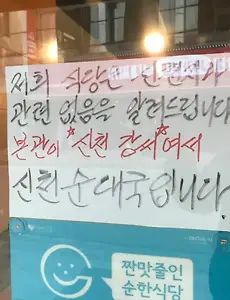 저희 식당은 신천지와
관련 없음을 알려드립니다
본관이 *신천 강씨*여서
신천순대국입니다
짠맛줄인
순한식당